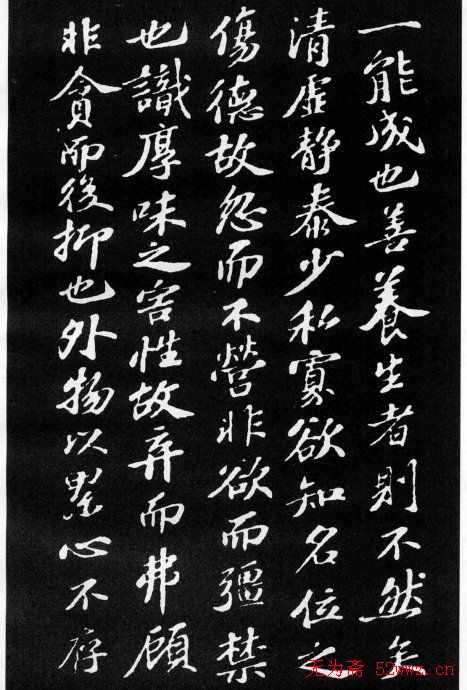 一能成也善養生者則不然矣
清虛静泰少私寡欲知名位之
傷德故忽而不營非欲而彊禁
也識厚味之害性故弃而弗顧
非貪而後抑也外物以累心不存
无为斋 52wwz.cn